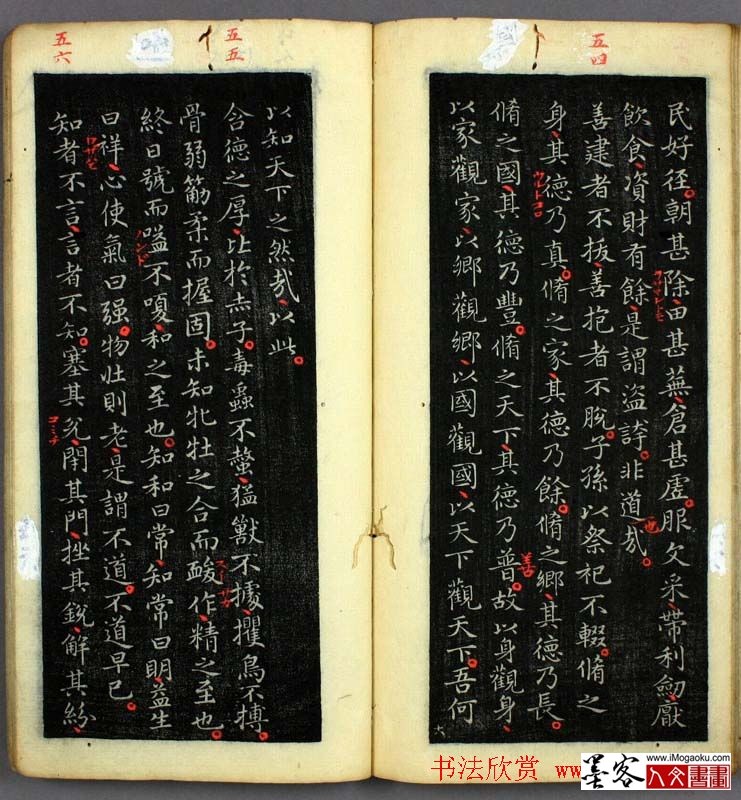 五四
民好径朝甚除田甚蕪倉甚虛服文采帶利劒厭
飲食資財有餘是謂盜誇非道哉
也
善建者不拔善抱者不脫子孫以祭祀不輟脩之
身其德乃真脩之家其德乃餘脩之鄉其德乃長
ウルトコロ
脩之國其德乃豐脩之天下其德乃普故以身觀身
善
以家觀家以鄉觀鄉以國觀國以天下觀天下吾何
五五
以知天下之然哉以此
含德之厚比於赤子毒蟲不螫猛獸不據玃鳥不搏
骨弱筋柔而握固未知牝牡之合而酸作精之至也
終日號而嗌不嗄和之至也知和曰常知常曰明益生
ノンド
曰祥心使氣曰强物壯則老是謂不道不道早已
五六
知者不言言者不知塞其兌閇其門挫其銳解其紛
书法欣赏 www
墨客
人文書畫
www.iMogaoku.com